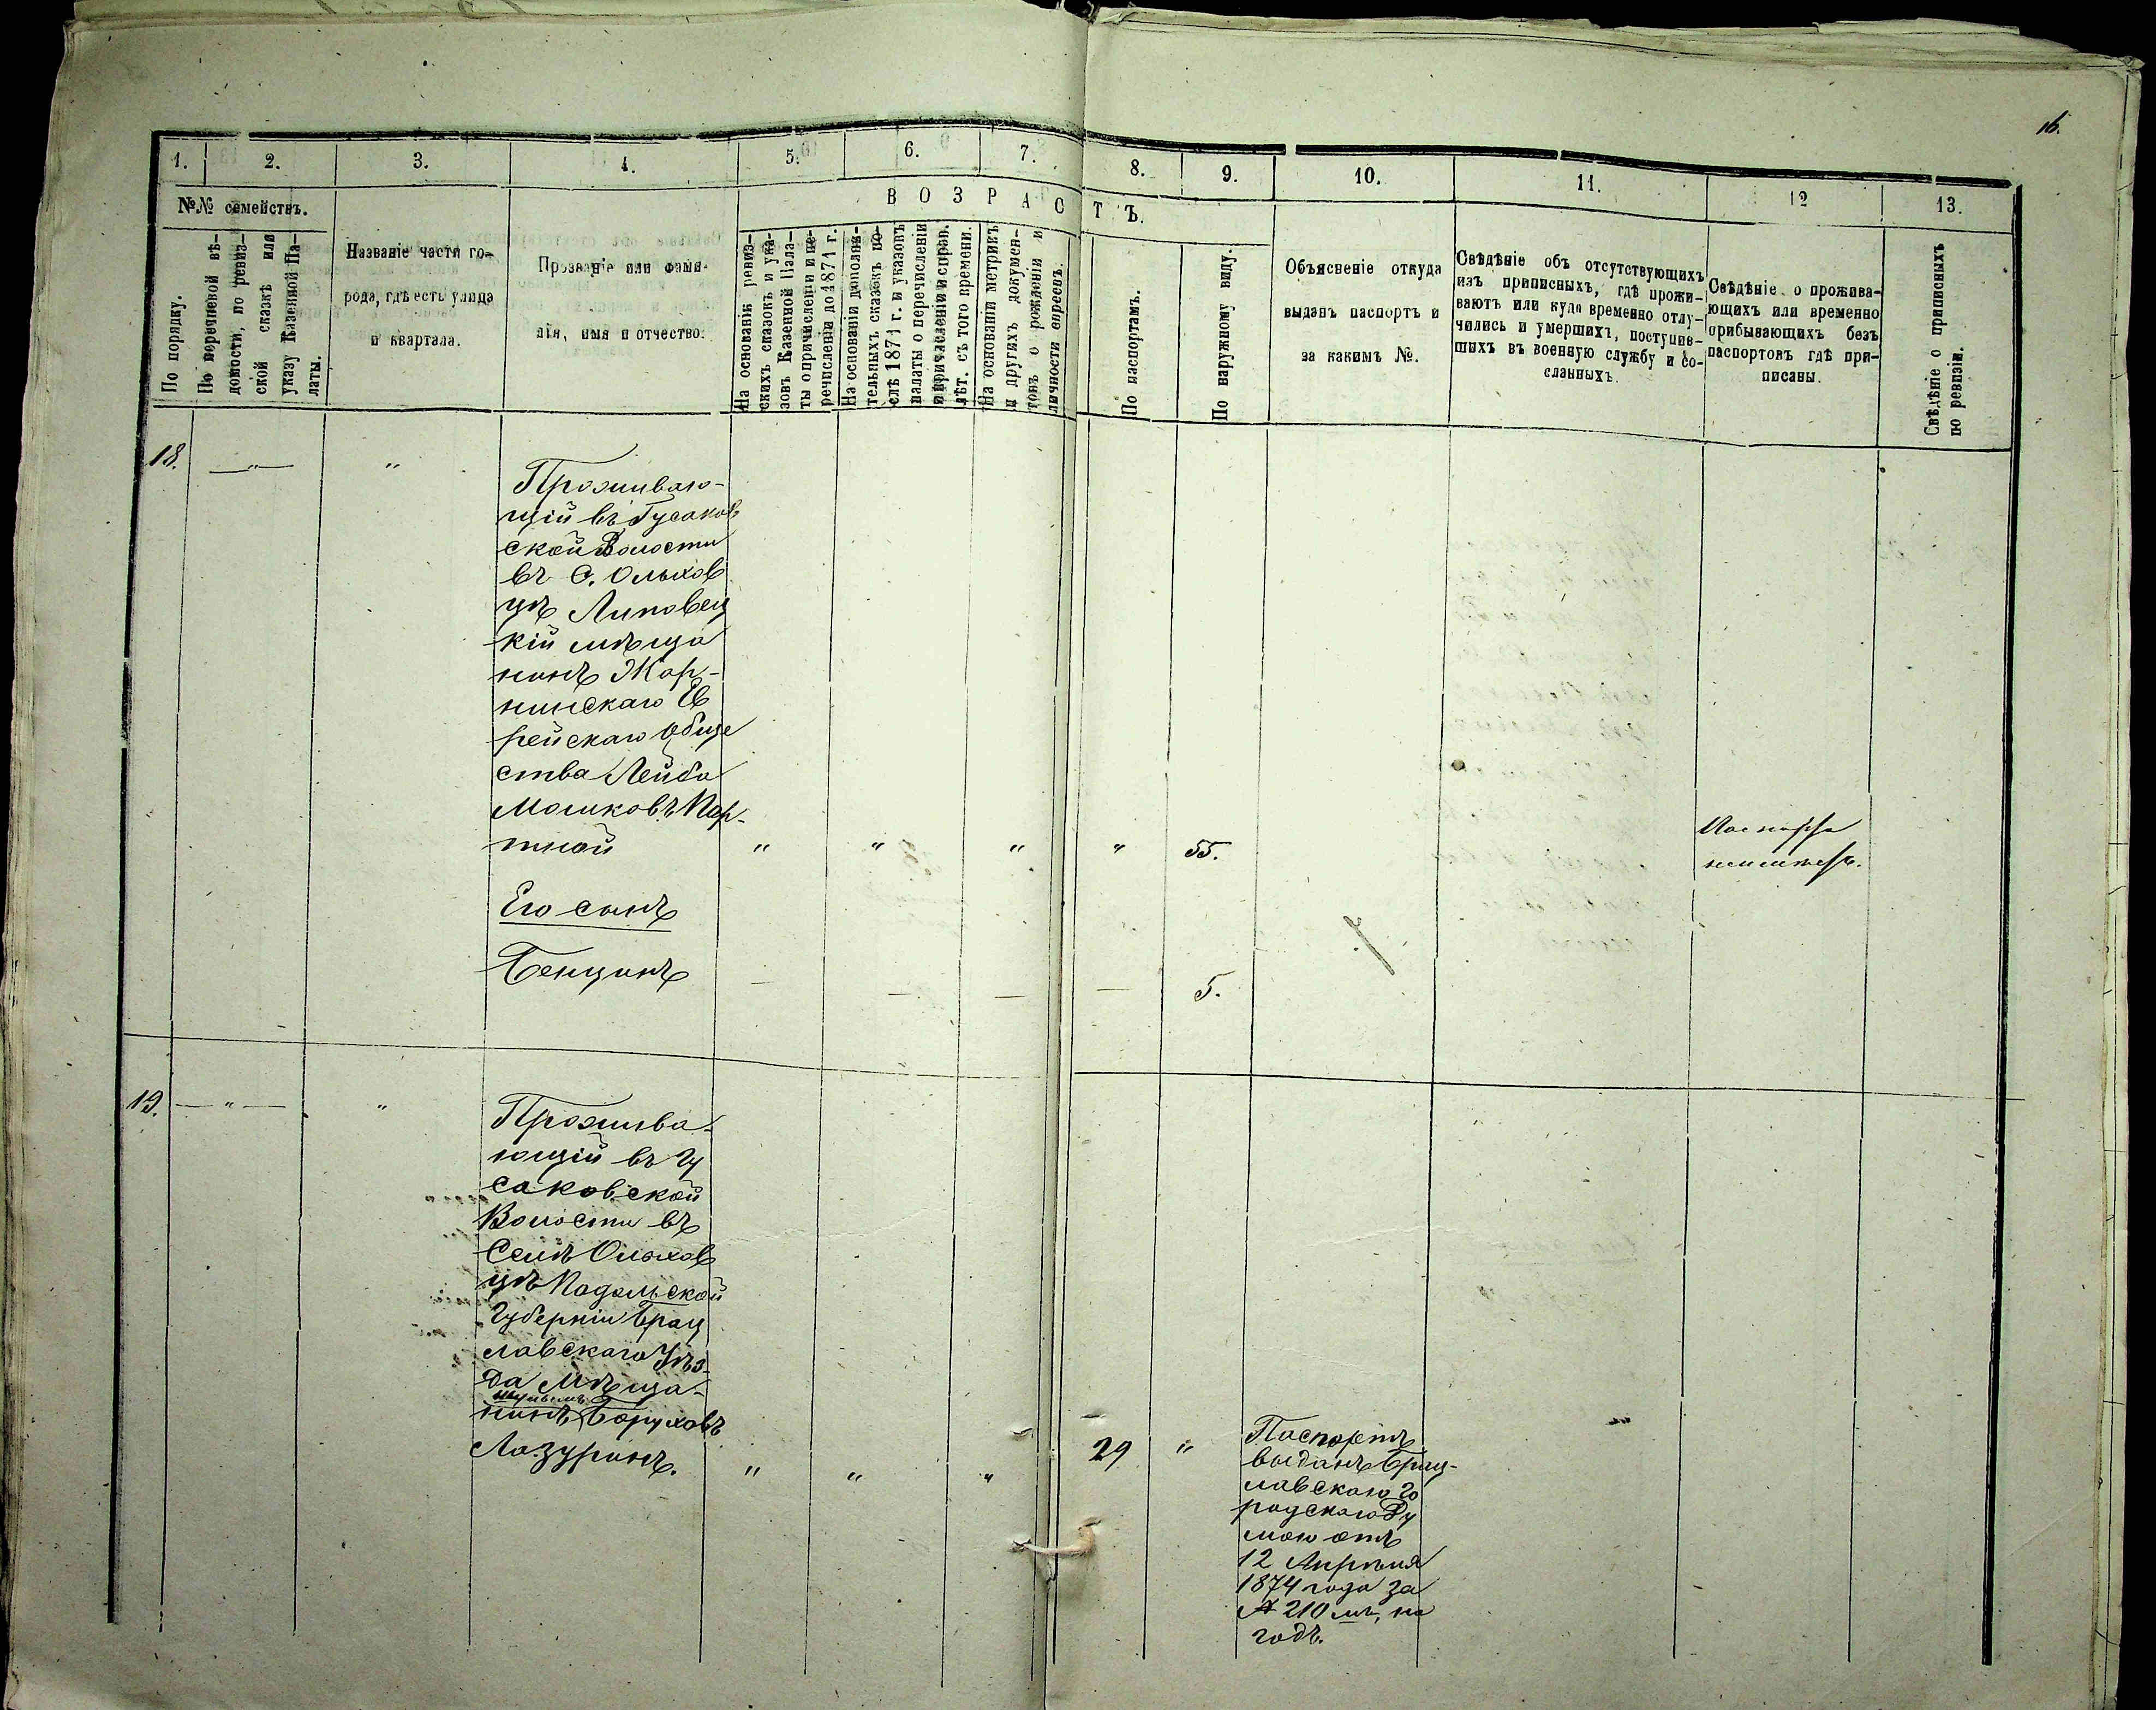 16.
1.
2.
3.
4.
5.
6.
7.
8.
9.
10.
11.
12
13.
№№ семействъ.
По порядку.
По перечневой вѣ-
домости, по ревиз-
ской сказкѣ или
указу Казенной Па-
латы.
Названіе части го-
рода, гдѣ есть улица
и квартала.
Прозваніе или фами-
лія, имя и отчество.
ВОЗРАСТЪ.
На основаніи ревиз-
скихъ сказокъ и ука-
зовъ Казенной Пала-
ты о причисленіи и пе-
речисленіи до 1871 г.
На основаніи дополни-
тельныхъ сказокъ по-
слѣ 1871 г. и указовъ
палаты о перечисленіи
и причисленіи и справ.
лѣт. съ того времени.
На основаніи метрикъ
и другихъ докумен-
товъ о рожденіи и
личности евреевъ.
По паспортамъ.
По наружному виду.
Объясненіе откуда
выданъ паспортъ и
за какимъ №.
Свѣдѣніе объ отсутствующихъ
изъ приписныхъ, гдѣ прожи-
ваютъ или куда временно отлу-
чились и умершихъ, поступив-
шихъ въ военную службу и со-
сланныхъ.
Свѣдѣніе о прожива-
ющихъ или временно
прибывающихъ безъ
паспортовъ гдѣ при-
писаны.
Свѣдѣніе о приписныхъ
по ревизіи.
18. — " — "
Проживаю-
щій въ Гусаков
ской Волости
въ С. Ольхов
цѣ Липовец
кій мѣща
нинъ Жор-
нинскаго Ев
рейскаго Обще
ства Лейба
Мошковъ Пор-
тной " " " " 55.
Паспорта
неимѣетъ.
Его сынъ
Бенционъ — — — — 5.
19. — " — "
Прожива-
ющій въ Гу
саковской
Волости въ
Селѣ Ольхов
цѣ Подольской
Губерніи Брац
лавскаго Уѣз-
да Мѣща-
нинъ Боруховъ
Лазуринъ. " " " 29 "
Паспортъ
выданъ Брац-
лавскою Го
родскою Ду
мою отъ
12 Апрѣля
1874 года за
№ 210 мъ, на
годъ.